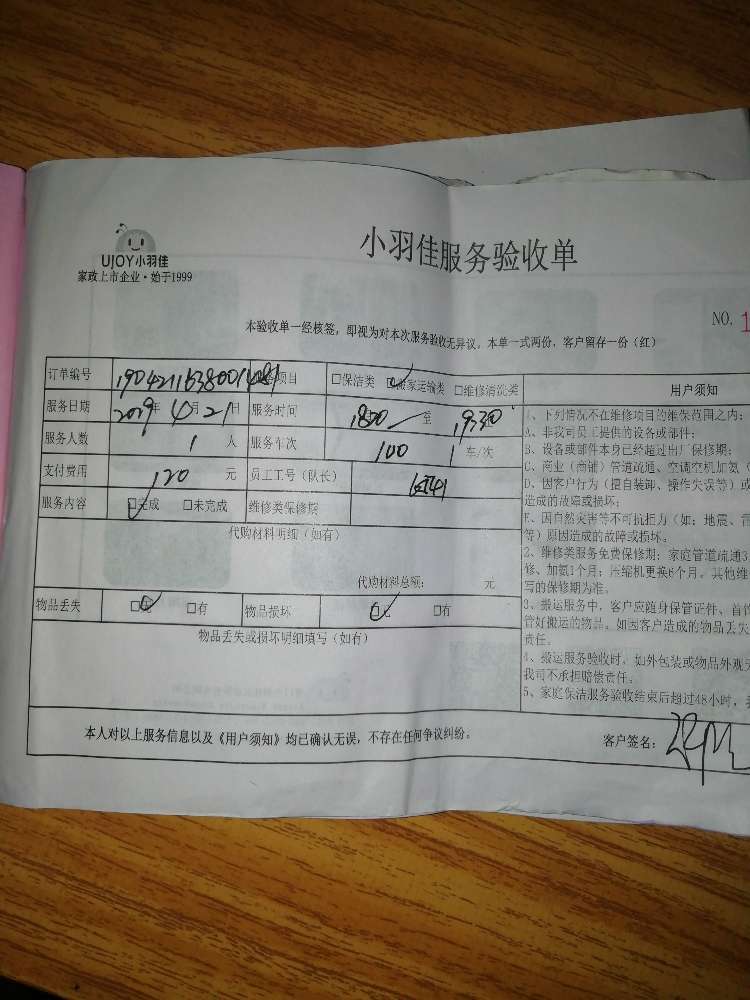 UJOY小羽佳
家政上市企业·始于1999
小羽佳服务验收单
NO. 1
本验收单一经核签，即视为对本次服务验收无异议，本单一式两份，客户留存一份（红）
订单编号 项目 □保洁类 □搬家运输类 □维修清洗类
服务日期 2019年4月21日 服务时间 1800 至 1930
服务人数 1 人 服务车次 100 1 车/次
支付费用 120 元 员工工号（队长）
服务内容 □完成 □未完成 维修类保修期
代购材料明细（如有）
代购材料总额： 元
物品丢失 □无 □有 物品损坏 □无 □有
物品丢失或损坏明细填写（如有）
用户须知
1、下列情况不在维修项目的维保范围之内：
A、非我司员工提供的设备或部件；
B、设备或部件本身已经超过出厂保修期；
C、商业（商铺）管道疏通、空调空机加氨（
D、因客户行为（擅自装卸、操作失误等）或
造成的故障或损坏；
E、因自然灾害等不可抗拒力（如：地震、雷
等）原因造成的故障或损坏。
2、维修类服务免费保修期：家庭管道疏通3
修、加氨1个月；压缩机更换6个月。其他维
写的保修期为准。
3、搬运服务中，客户应随身保管证件、首饰
管好搬运的物品。如因客户造成的物品丢失
责任。
4、搬运服务验收时，如外包装或物品外观完
我司不承担赔偿责任。
5、家庭保洁服务验收结束后超过48小时，
本人对以上服务信息以及《用户须知》均已确认无误，不存在任何争议纠纷。
客户签名：